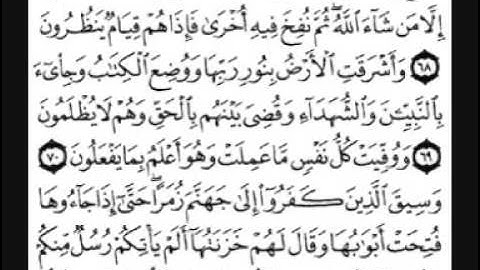 إِلَّا مَن شَآءَ ٱللَّهُ ۖ ثُمَّ نُفِخَ فِيهِ أُخْرَىٰ فَإِذَا هُمْ قِيَامٌ يَنظُرُونَ
﴿٦٨﴾ وَأَشْرَقَتِ ٱلْأَرْضُ بِنُورِ رَبِّهَا وَوُضِعَ ٱلْكِتَٰبُ وَجِا۟ىٓءَ
بِٱلنَّبِيِّۦنَ وَٱلشُّهَدَآءِ وَقُضِىَ بَيْنَهُم بِٱلْحَقِّ وَهُمْ لَا يُظْلَمُونَ
﴿٦٩﴾ وَوُفِّيَتْ كُلُّ نَفْسٍ مَّا عَمِلَتْ وَهُوَ أَعْلَمُ بِمَا يَفْعَلُونَ ﴿٧٠﴾
وَسِيقَ ٱلَّذِينَ كَفَرُوٓا۟ إِلَىٰ جَهَنَّمَ زُمَرًا ۖ حَتَّىٰٓ إِذَا جَآءُوهَا
فُتِحَتْ أَبْوَٰبُهَا وَقَالَ لَهُمْ خَزَنَتُهَآ أَلَمْ يَأْتِكُمْ رُسُلٌ مِّنكُمْ